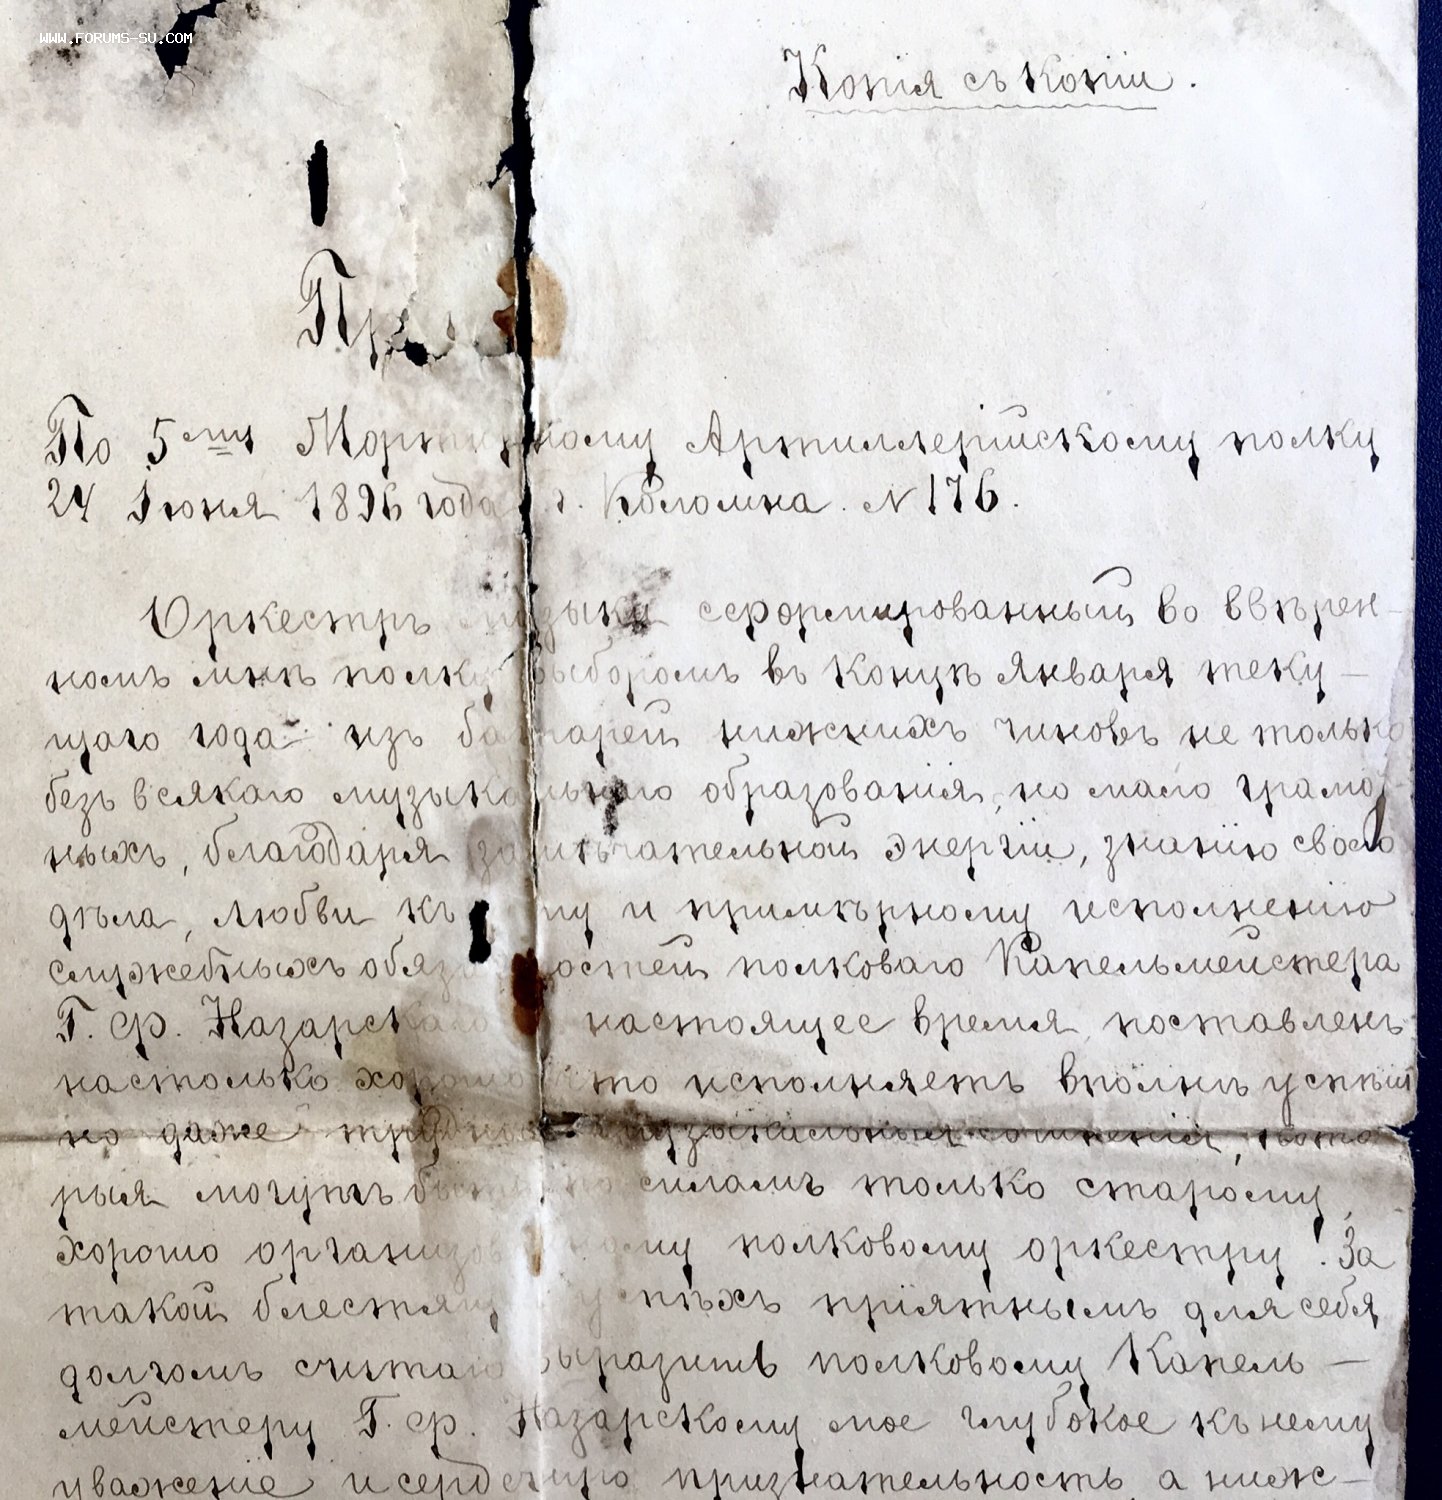 WWW.FORUMS-SU.COM
Копія съ копіи.
По 5му Мортирному Артиллерійскому полку
24 Іюня 1896 года г. Коломна. N 176.
Оркестръ музыки сформированный во ввѣрен-
номъ мнѣ полку выборомъ въ концѣ Января теку-
щаго года изъ батарей нижнихъ чиновъ не только
безъ всякаго музыкальнаго образованія, но мало грамот-
ныхъ, благодаря замѣчательной энергіи, знанію своего
дѣла, любви къ нему и примѣрному исполненію
служебныхъ обязанностей полковаго Капельмейстера
Г. ф. Назарскаго настоящее время поставленъ
настолько хорошо что исполняетъ вполнѣ успѣш
но даже трудныя музыкальныя сочиненія, кото
рыя могутъ быть по силамъ только старому,
хорошо организованному полковому оркестру. За
такой блестящій успѣхъ пріятнымъ для себя
долгомъ считаю выразить полковому Капель-
мейстеру Г. ф. Назарскому мое глубокое къ нему
уваженіе и сердечную признательность, а ниж-